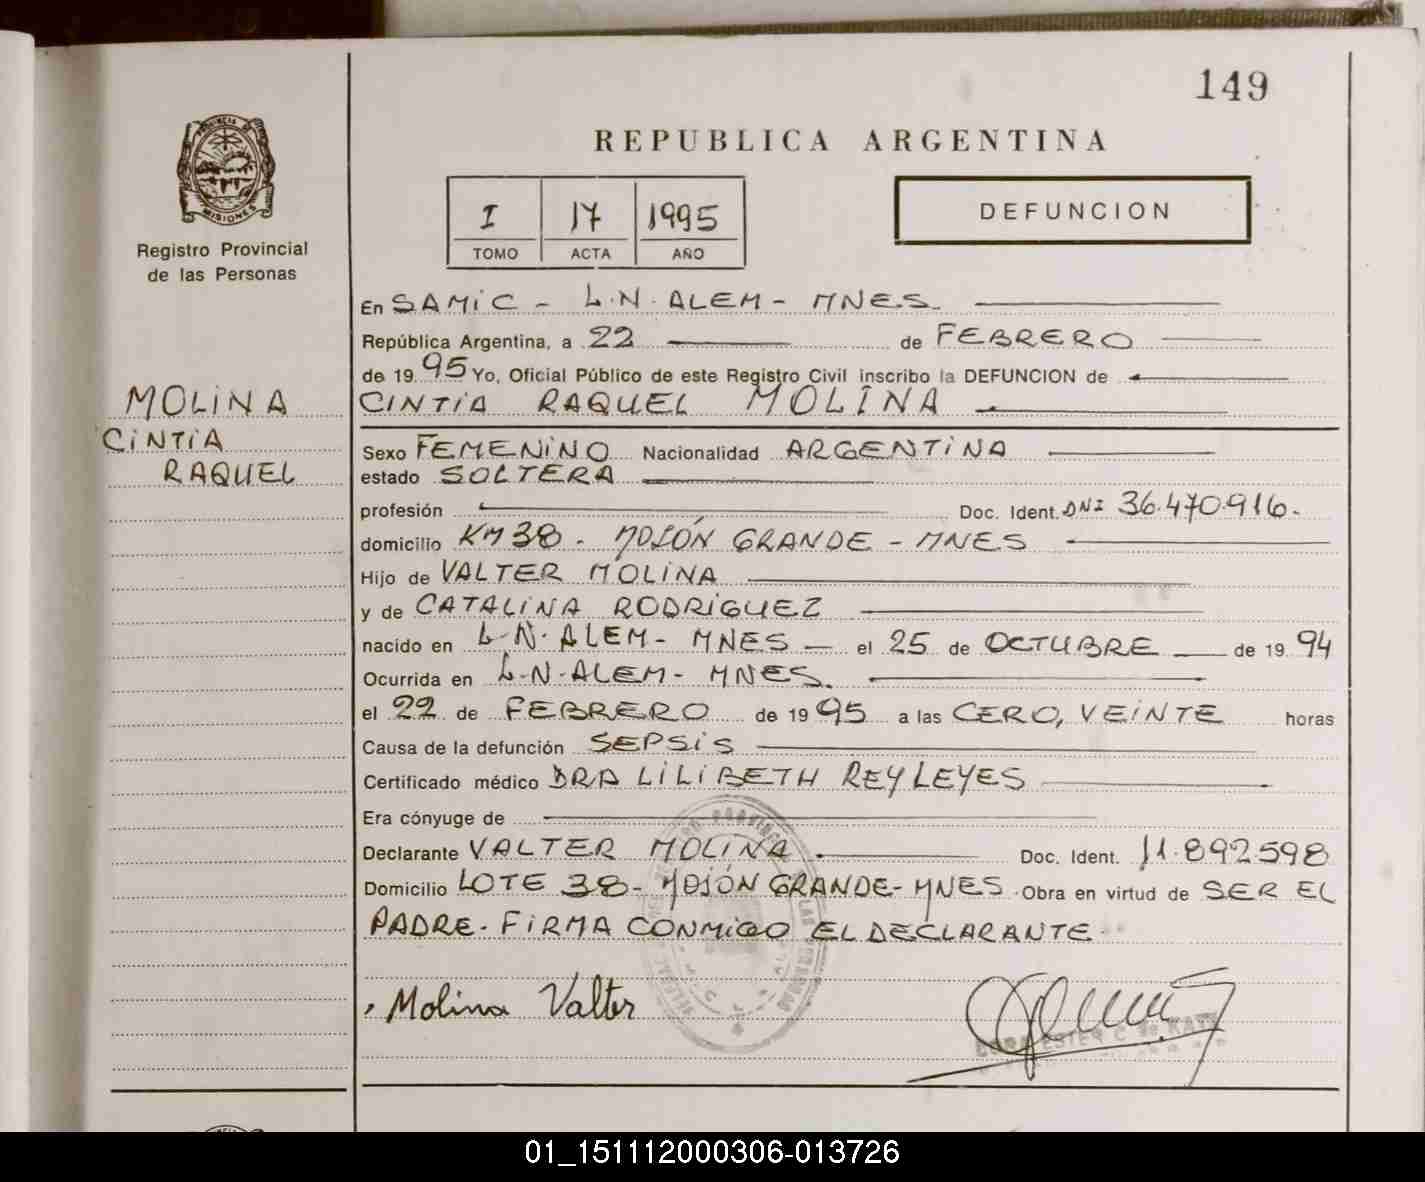 149
REPUBLICA ARGENTINA
PROVINCIA DE
MISIONES
Registro Provincial
de las Personas
I 17 1995
TOMO ACTA AÑO
DEFUNCION
En SAMiC - L.N. ALEM - MNES.
República Argentina, a 22 de FEBRERO
de 19 95 Yo, Oficial Público de este Registro Civil inscribo la DEFUNCION de
CINTIA RAQUEL MOLINA
MOLINA
CINTIA
RAQUEL
Sexo FEMENINO Nacionalidad ARGENTINA
estado SOLTERA
profesión Doc. Ident. DNI 36.470.916.
domicilio KM 38 - MOJÓN GRANDE - MNES
Hijo de VALTER MOLINA
y de CATALINA RODRIGUEZ
nacido en L-N-ALEM- MNES el 25 de OCTUBRE de 19 94
Ocurrida en L-N-ALEM- MNES.
el 22 de FEBRERO de 19 95 a las CERO, VEINTE horas
Causa de la defunción SEPSIS
Certificado médico DRA LILIBETH REY LEYES
Era cónyuge de
Declarante VALTER MOLINA Doc. Ident. 11.892.598
Domicilio LOTE 38- MOJÓN GRANDE- MNES. Obra en virtud de SER EL
PADRE. FIRMA CONMIGO EL DECLARANTE.
Molina Valter
ESTER C. de
01_151112000306-013726